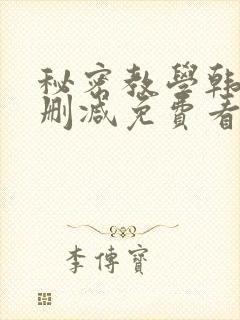 秘密教學韩
删减免費看
李傳寶